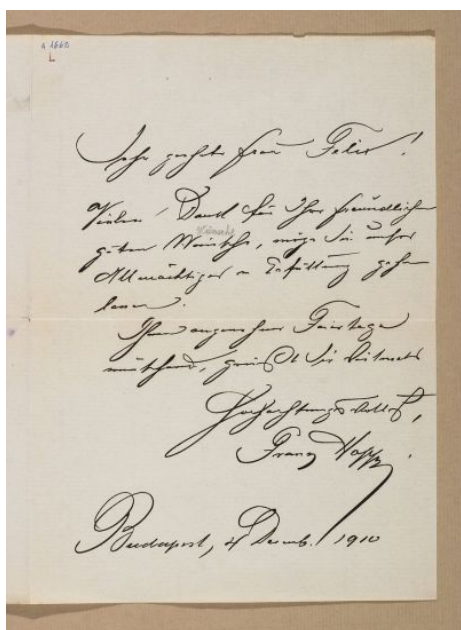 A 1660
L
Sehr geehrte Frau Felix!
Vielen Dank für Ihre freundlichen
Wünsche
guten Wünsche, möge Sie unser
Allmächtiger in Erfüllung gehen
lassen.
Ihnen angenehme Feiertage
wünschend, grüßt Sie
Hochachtungsvollst,
Franz Hopp.
Budapest, 4 Decemb. 1910